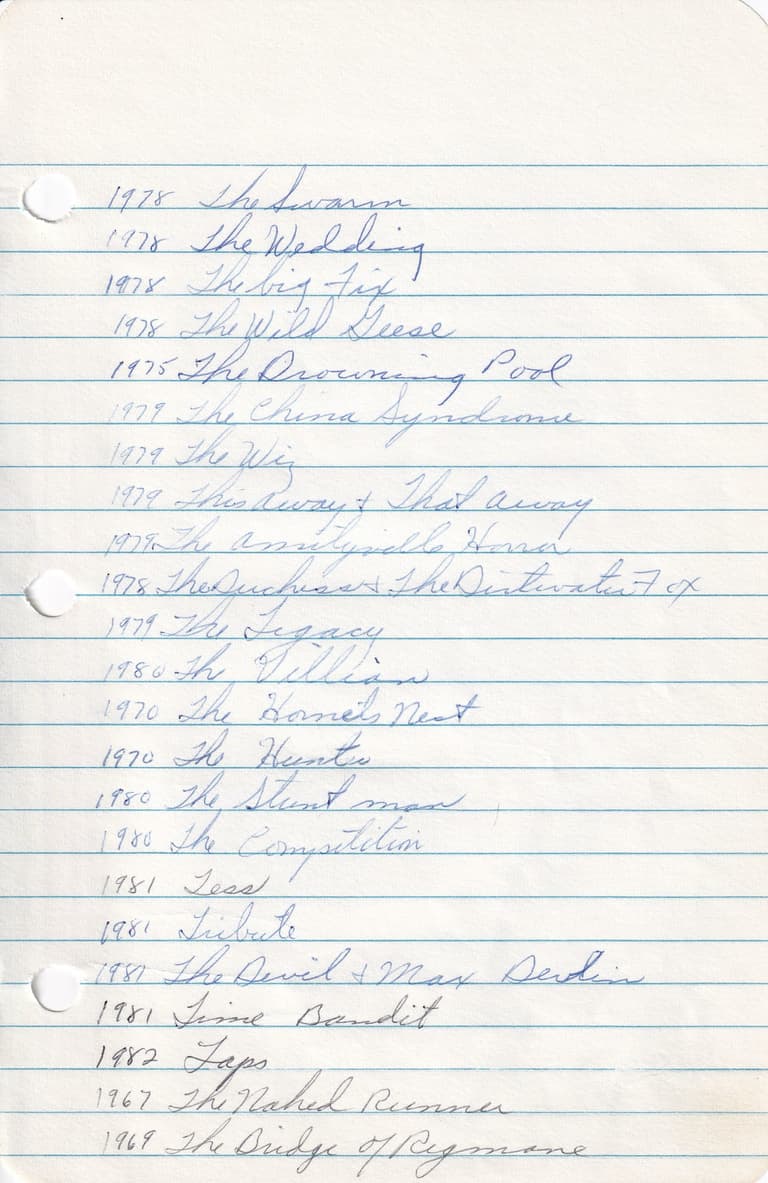 1978 The Swarm
1978 The Wedding
1978 The big Fix
1978 The Wild Geese
1975 The Drowning Pool
1979 The China Syndrome
1979 The Wiz
1979 This away & That away
1979 The Amityville Horror
1978 The Duchess & The Dirtwater Fox
1979 The Legacy
1980 The Villian
1970 The Hornets Nest
1970 The Hunter
1980 The Stunt man
1980 The Competition
1981 Tess
1981 Tribute
1981 The Devil & Max Devlin
1981 Time Bandit
1982 Taps
1967 The Naked Runner
1969 The Bridge of Regmane